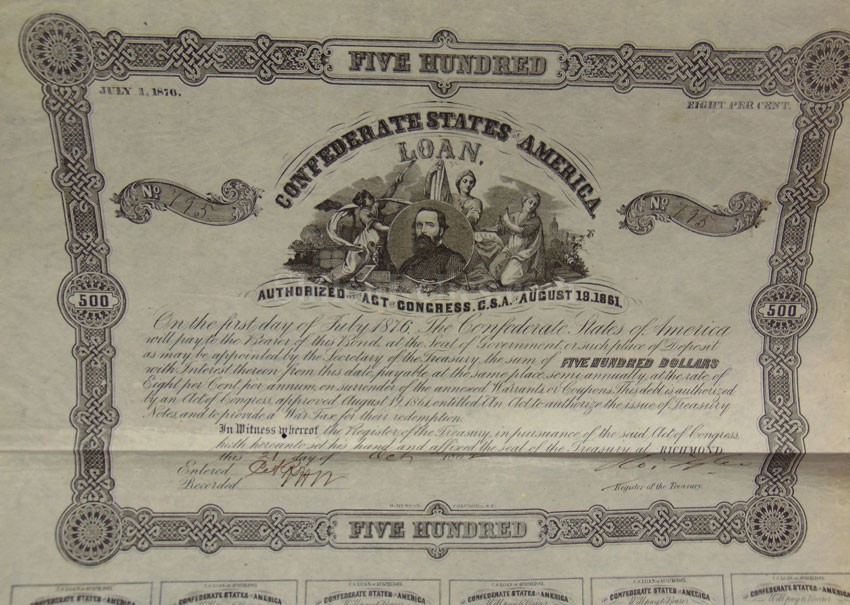 FIVE HUNDRED
JULY 1, 1876.
EIGHT PER CENT.
CONFEDERATE STATES OF AMERICA.
LOAN.
No 195
No 195
AUTHORIZED BY ACT OF CONGRESS. C.S.A. OF AUGUST 19. 1861.
500
500
On the first day of July 1876, The Confederate States of America
will pay to the Bearer of this Bond, at the Seat of Government, or such place of Deposit
as may be appointed by the Secretary of the Treasury, the sum of FIVE HUNDRED DOLLARS
with Interest thereon from this date, payable at the same place, semi-annually, at the rate of
Eight per Cent, per annum, on surrender of the annexed Warrants or Coupons. This debt is authorized
by an Act of Congress, approved August 19, 1861, entitled An Act to authorize the issue of Treasury
Notes, and to provide a War Tax for their redemption.
In Witness whereof, the Register of the Treasury, in pursuance of the said Act of Congress,
hath hereunto set his hand, and affixed the seal of the Treasury at RICHMOND,
this 21 day of Oct
Entered
Recorded
Register of the Treasury.
FIVE HUNDRED
CONFEDERATE STATES OF AMERICA
CONFEDERATE STATES OF AMERICA
CONFEDERATE STATES OF AMERICA
CONFEDERATE STATES OF AMERICA
CONFEDERATE STATES OF AMERICA
CONFEDERATE STATES OF AMERICA